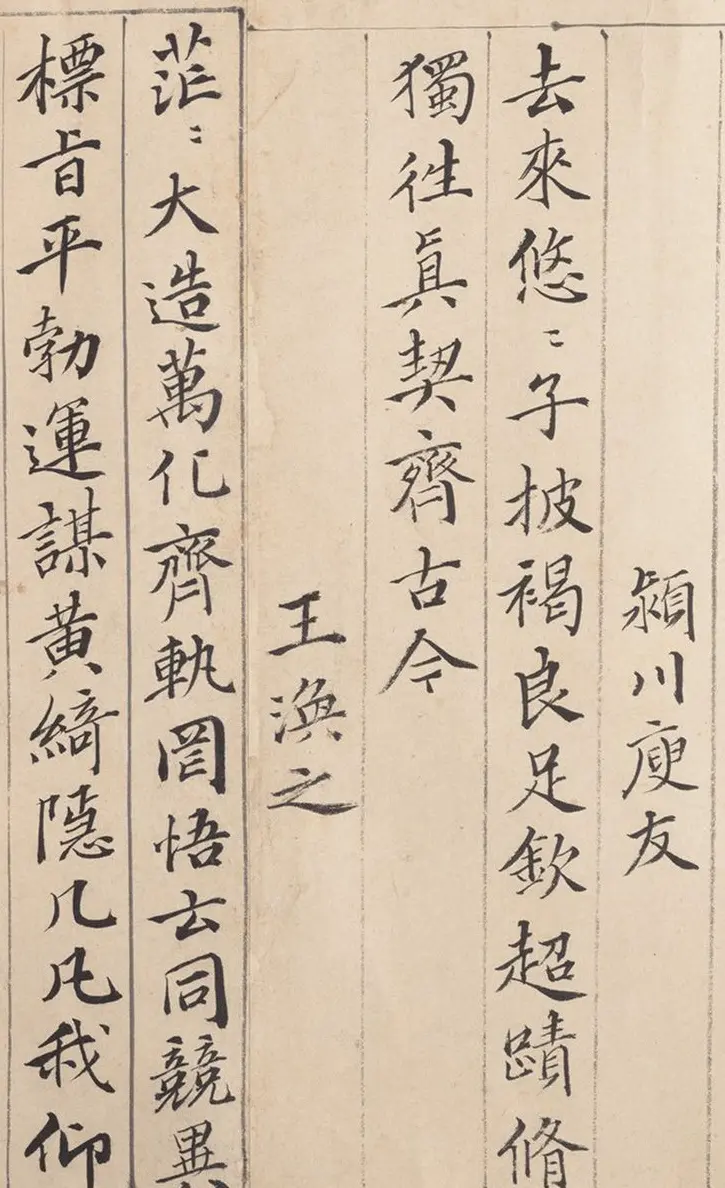 潁川庾友
去來悠〻子披褐良足欽超蹟脩
獨徃眞契齊古今
王渙之
茫〻大造萬化齊軌罔悟玄同競異
標旨平勃運謀黃綺隱几凡我仰